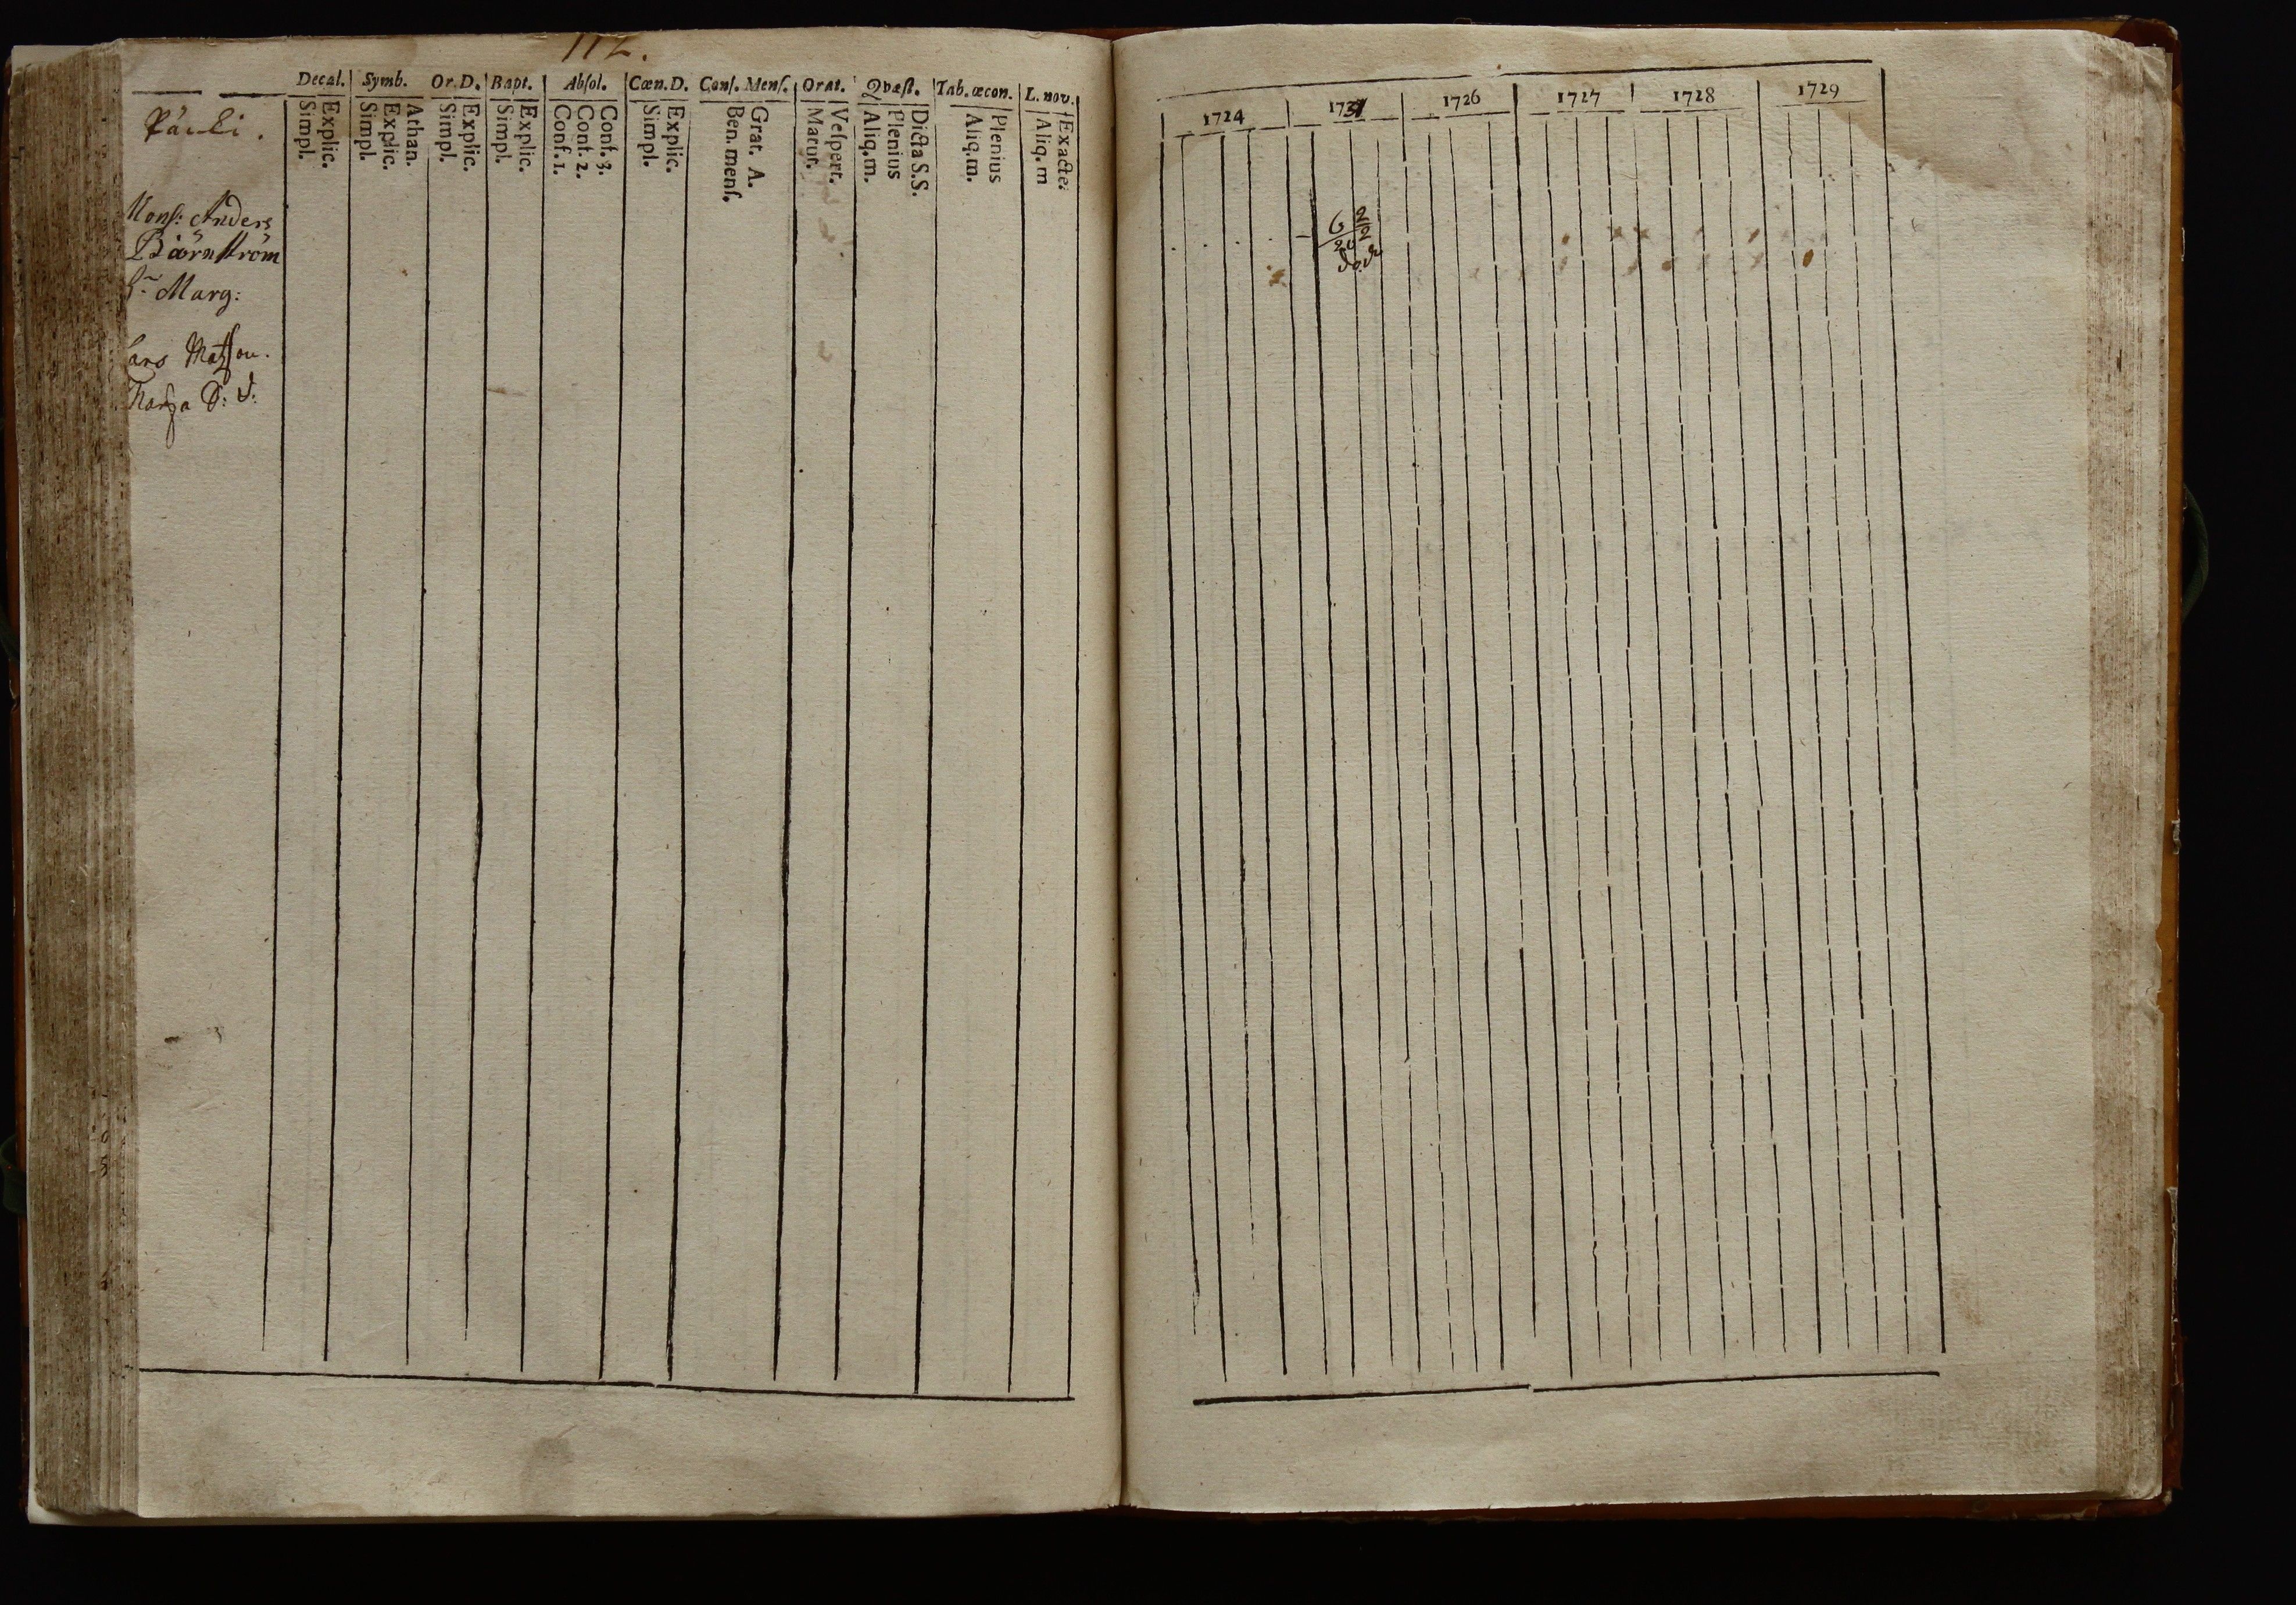 112.
Decal. Symb. Or. D. Bapt. Absol. Cœn. D. Conf. Mens. Orat. Qvæst. Tab. œcon. L. nov.
Explic.
Simpl.
Athan.
Explic.
Simpl.
Explic.
Simpl.
Explic.
Simpl.
Conf. 3.
Conf. 2.
Conf. 1.
Explic.
Simpl.
Grat. A.
Ben. menſ.
Veſpert.
Matut.
Dicta S.S.
Plenius
Aliq. m.
Plenius
Aliq. m.
Exacte.
Aliq. m
Monſ: Anders
Biörnſtröm
Marg:
Lars Matſſon.
1724 1731 1726 1727 1728 1729
6/20 2/2